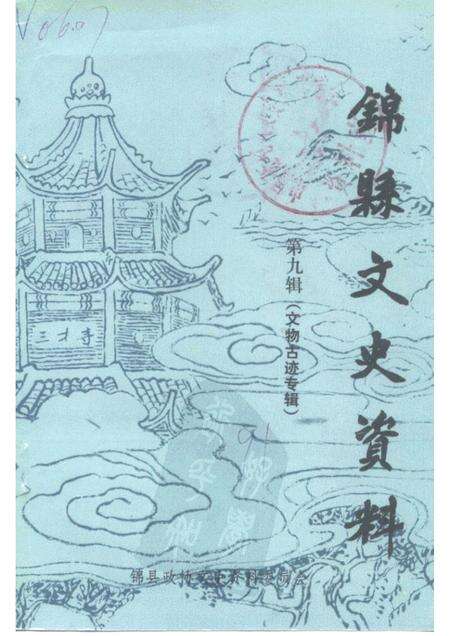 №0607
錦縣文史資料
第九辑(文物古迹专辑)
三才寺
锦县政协文史资料委员会